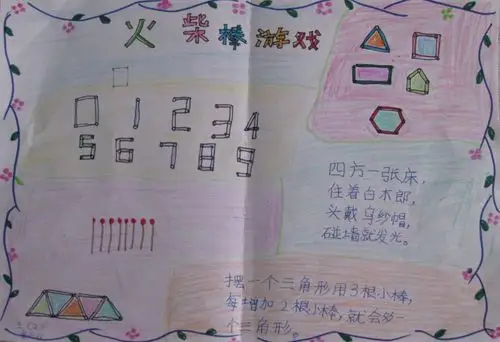 火柴棒游戏
0 1 2 3 4
5 6 7 8 9
四方一张床，
住着白木郎，
头戴乌纱帽，
碰墙就发光。
摆一个三角形用3根小棒，
每增加2根小棒，就会多一
个三角形。